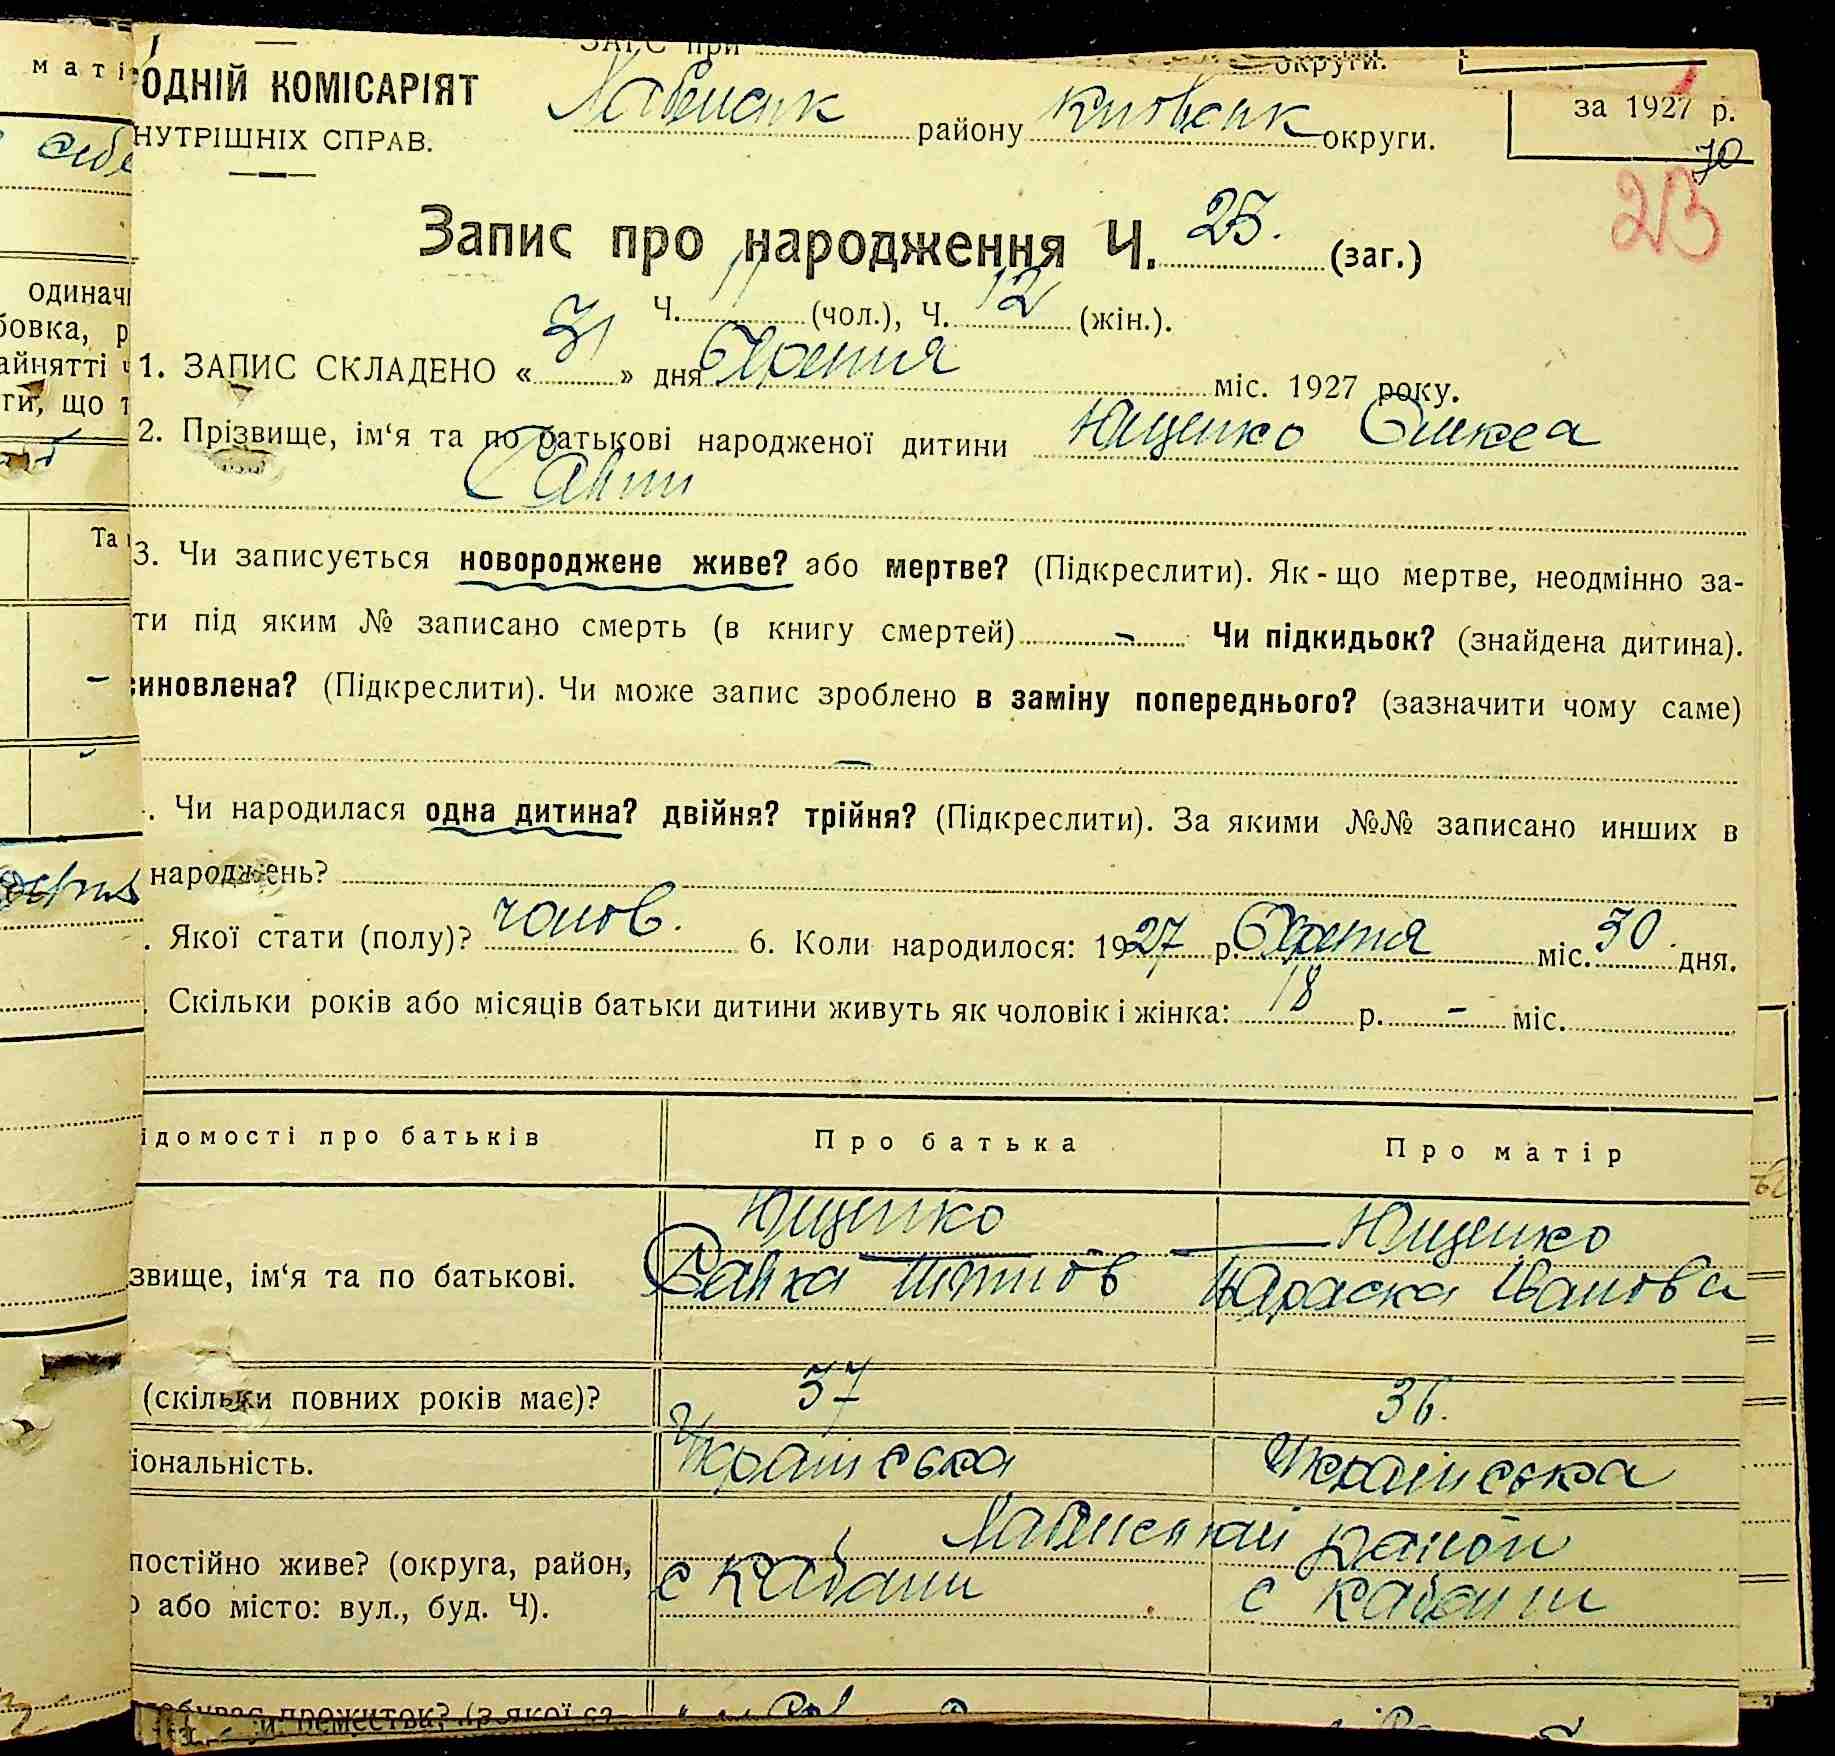 ЗАГС при
округи.
ОДНІЙ КОМІСАРІЯТ
НУТРІШНІХ СПРАВ.
Хабенськ району Київськ округи.
за 1927 р.
70
23
Запис про народження Ч. 25. (заг.)
Ч. 11 (чол.), Ч. 12 (жін.).
1. ЗАПИС СКЛАДЕНО « 31 » дня Березня міс. 1927 року.
2. Прізвище, ім‘я та по батькові народженої дитини Ющенко Олекса
Савки
3. Чи записується новороджене живе? або мертве? (Підкреслити). Як-що мертве, неодмінно за-
ти під яким № записано смерть (в книгу смертей) – Чи підкидьок? (знайдена дитина).
иновлена? (Підкреслити). Чи може запис зроблено в заміну попереднього? (зазначити чому саме)
–
. Чи народилася одна дитина? двійня? трійня? (Підкреслити). За якими №№ записано инших в
народжень?
. Якої стати (полу)? чолов. 6. Коли народилося: 1927 р. Березня міс. 30 дня.
. Скільки років або місяців батьки дитини живуть як чоловік і жінка: 18 р. – міс.
ідомості про батьків Про батька Про матір
Ющенко Ющенко
звище, ім‘я та по батькові. Савка Параска Іванова
(скільки повних років має)? 37 36.
іональність. Українська Українська
Хабенський район
постійно живе? (округа, район, с Кабани с Кабани
або місто: вул., буд. Ч).
маті
одинач
бовка, р
айнятті ч
ги, що т
Та